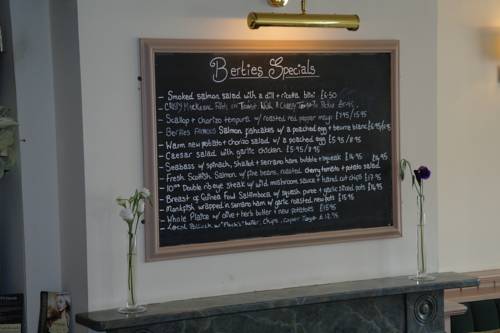 Berties Specials
- Smoked salmon salad with a dill + ricotta blini £6.50
- Crispy Mackerel Fillets on Toast With A Cherry Tomato
- Scallop + Chorizo tempura w/ roasted red pepper mayo £7.95/15.95
- Berties Famous Salmon fishcakes w/ a poached egg + beurre blanc £6.95/
- Warm new potato + chorizo salad w/ a poached egg £5.95/8.95
- Caesar salad with garlic chicken. £5.95/8.95
- Seabass w/ spinach, shallot + serrano ham bubble + squeak £16.95
- Fresh Scottish Salmon w/ fine beans, roasted cherry tomato + potato salad
- 10oz Double ribeye steak w/ wild mushroom sauce + hand cut chips £17.95
- Breast of Guinea Fowl Saltimbocca w/ squash puree + garlic sliced pots £14.95
- Monkfish wrapped in serrano ham w/ garlic roasted new pots £15.95
- Whole Plaice w/ olive + herb butter + new potatoes £15.95
- Local Pollock in batter, chips, caper £12.95